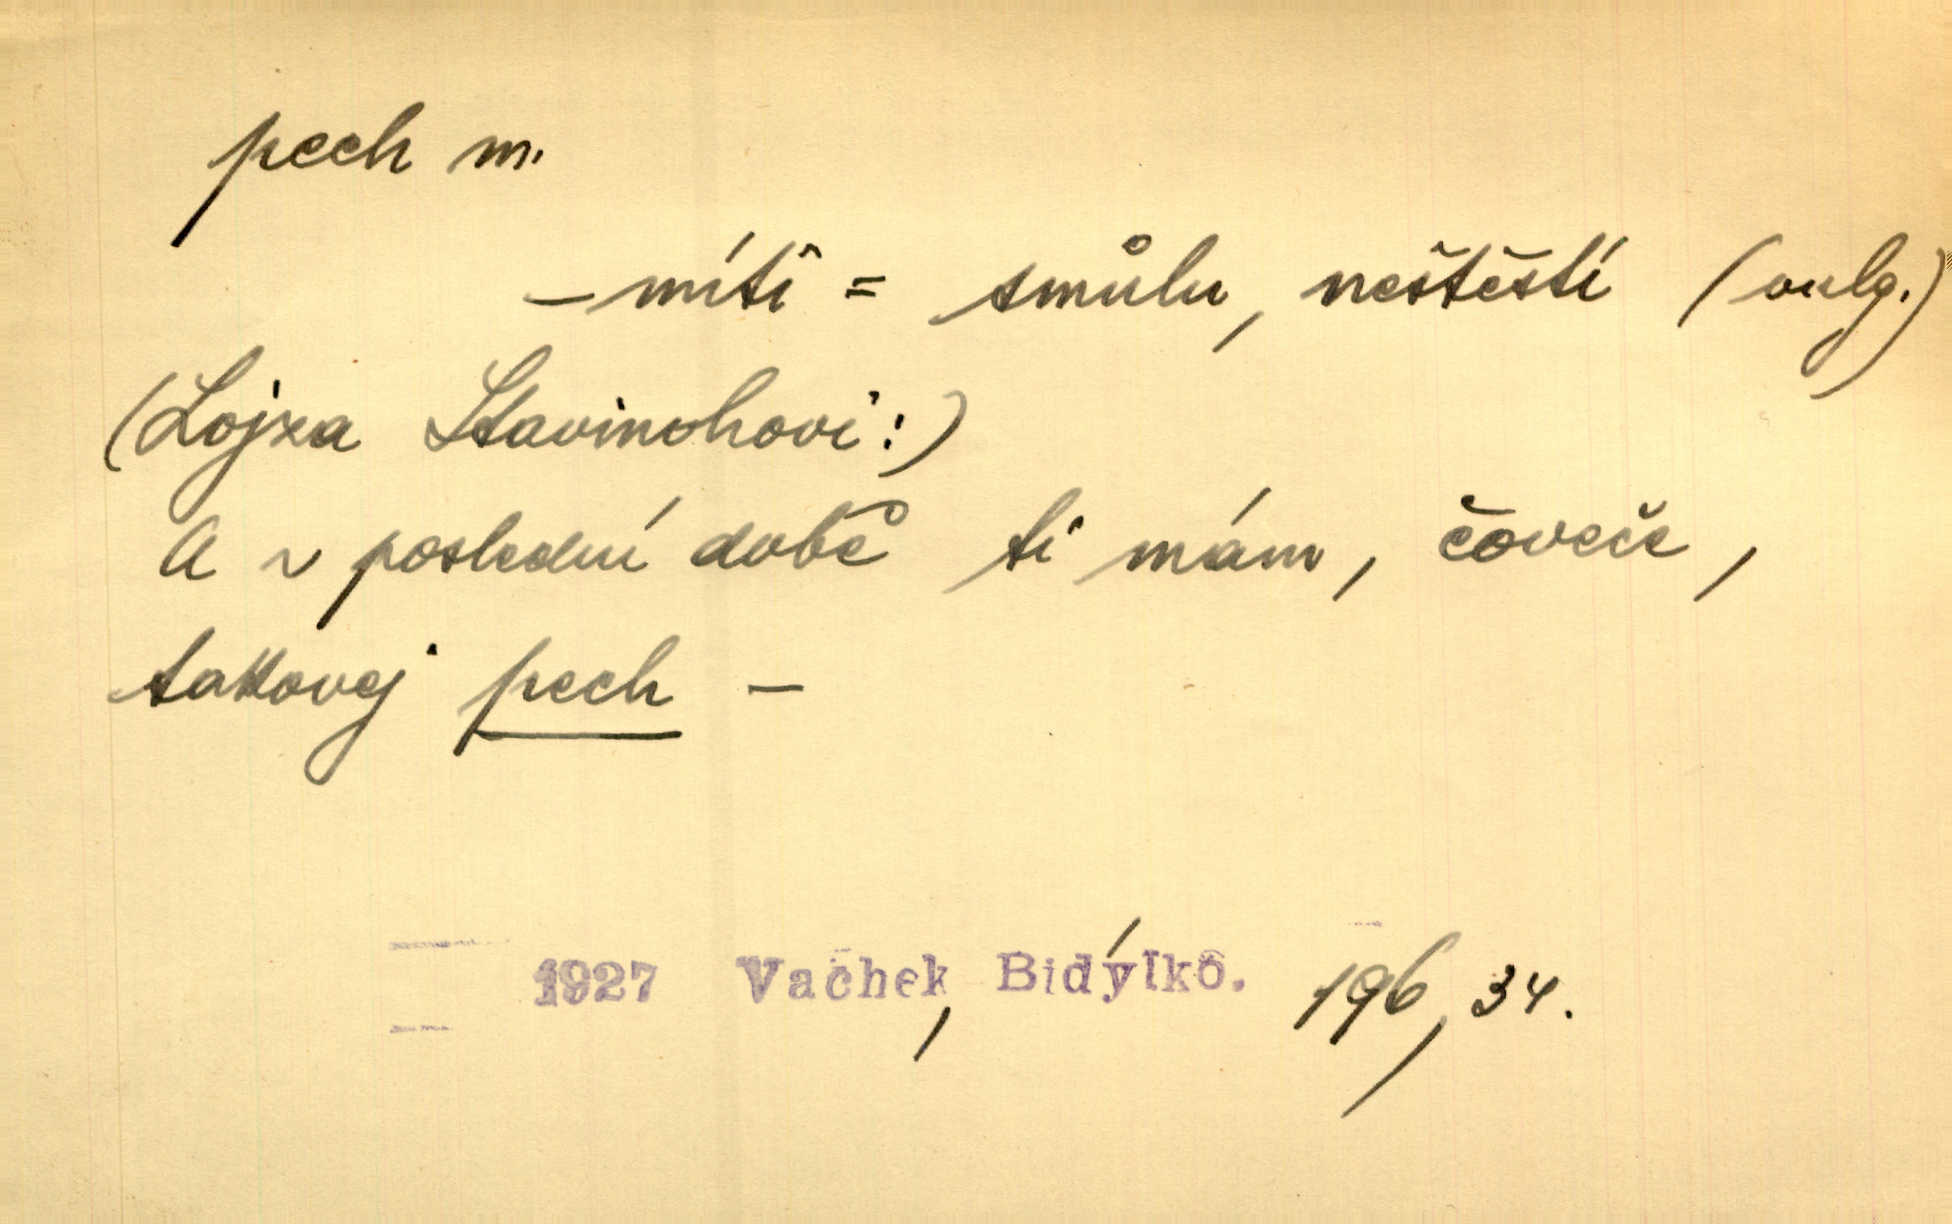 pech m.
– míti = smůlu, neštěstí (vulg.)
(Lojza Stavinohovi:)
A v poslední době ti mám, čoveče,
takovej pech –
1927 Vachek, Bidýlko. 196, 34.